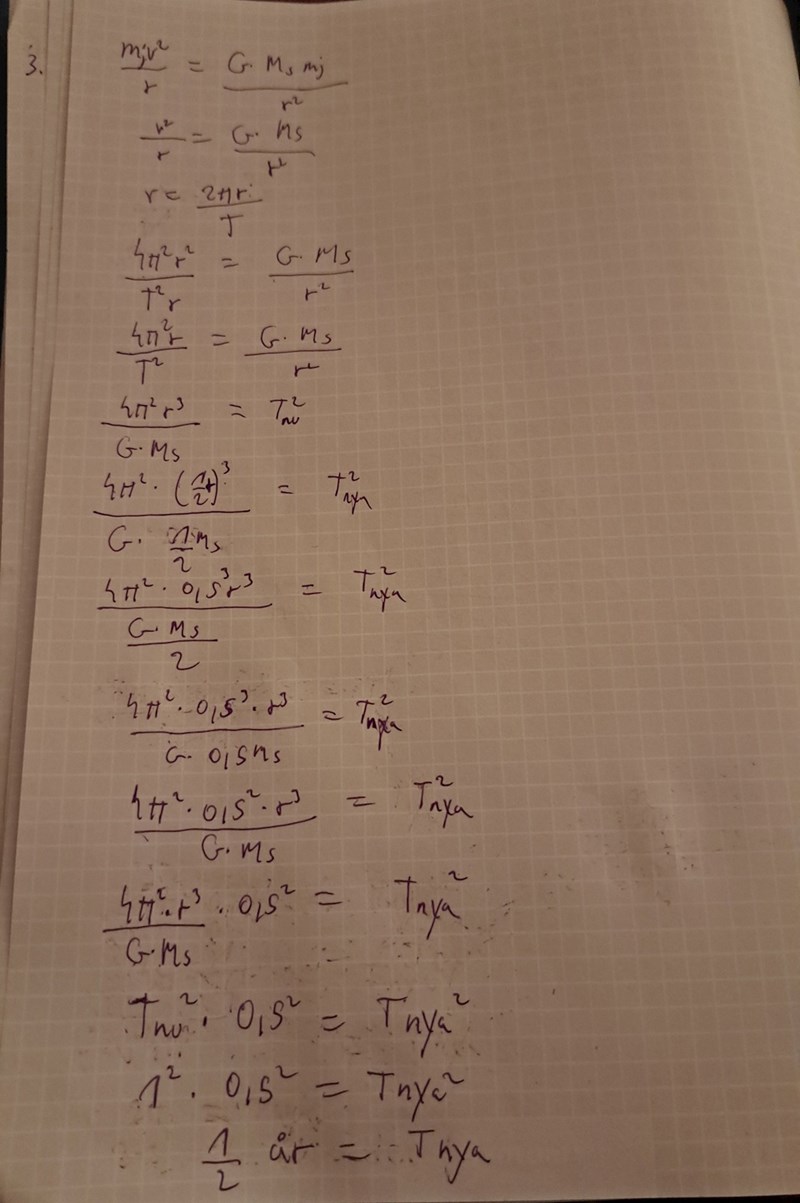 3. mjv²/r = G · Ms mj/r²
v²/r = G · Ms/r²
r = 2πr/T
4π²r²/T²r = G · Ms/r²
4π²r/T² = G · Ms/r²
4π²r³/G·Ms = Tnu²
4π² · (1/2r)³/G · 1/2Ms = Tnya²
4π² · 0,5³r³/(G·Ms/2) = Tnya²
4π² · 0,5³ · r³/G · 0,5Ms = Tnya²
4π² · 0,5² · r³/G·Ms = Tnya²
4π²·r³/G·Ms · 0,5² = Tnya²
Tnu² · 0,5² = Tnya²
1² · 0,5² = Tnya²
1/2 år = Tnya